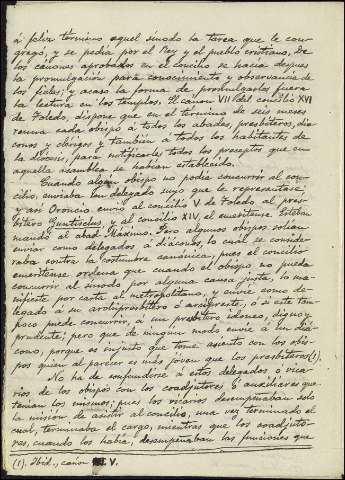 á feliz término aquel sínodo la tarea que le con-
gregó, y se pedía por el Rey y el pueblo cristiano. De
los cánones aprobados en el concilio se hacía después
la promulgación para conocimiento y observancia de
los fieles; y acaso la forma de promulgarlos fuera
la lectura en los templos. El canon VII del concilio XVI
de Toledo, dispone que en el término de seis meses
reuna cada obispo á todos los abades, presbíteros, diá-
conos y clérigos y también á todos los habitantes de
la diócesis, para notificarles todos los preceptos que en
aquella asamblea se habían establecido.
Cuando algún obispo no podía concurrir al con-
cilio, enviaba un delegado suyo que le representase;
y así Oroncio envió al concilio V de Toledo al pres-
bítero Guntisclo; y al concilio XIV, el emeritense Esteban
mandó al abad Máximo. Pero algunos obispos solían
enviar como delegados á diáconos, lo cual se conside-
raba contra la costumbre canónica, pues el concilio
emeritense ordena que cuando el obispo no pueda
concurrir al sínodo por alguna causa justa, lo ma-
nifieste por carta al metropolitano, y envíe como de-
legado á su archipresbítero ó arcipreste, ó si éste tam-
poco puede concurrir, á un presbítero idóneo, digno y
prudente; pero que de ningún modo envíe á un diá-
cono, porque es injusto que tome asiento con los obis-
pos quien al parecer es más joven que los presbíteros (1).
No ha de confundirse á estos delegados ó vica-
rios de los obispos con los coadjutores ó auxiliares que
tenían los mismos; pues los vicarios desempeñaban solo
la misión de asistir al concilio, una vez terminado el
cual, terminaba el cargo, mientras que los coadjuto-
res, cuando los había, desempeñaban las funciones que
(1). Ibid., canon V.